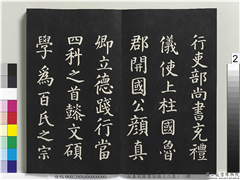 行吏部尚書充禮
儀使上柱國魯
郡開國公顏真
卿立德踐行當
四科之首懿文碩
學為百氏之宗
2